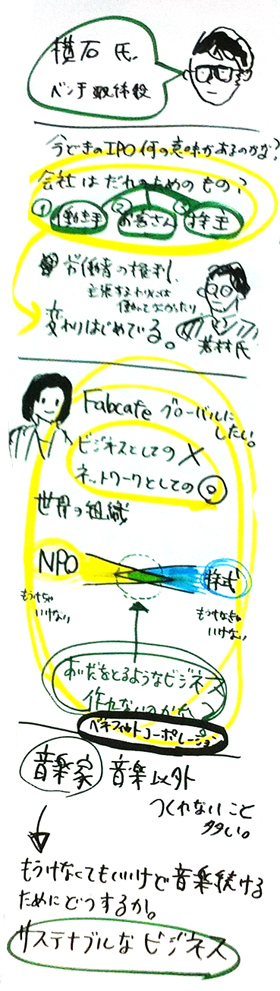 横石氏
ベンチ取締役
今どきのIPO何の意味があるのかな?
会社はだれのためのもの?
① 働き手 ② お客さん ③ 株主
労働者の権利、
主張するわりには
働いてなかったり
変わりはじめている。
若林氏
Fabcafe グローバルに
したい。
ビジネスとしての ×
ネットワークとしての ◎
世界の組織
NPO
株式
もうけちゃ
いけない
もうけなきゃ
いけない
あいだをとるようなビジネス
作れないのかな?
ベネフィットコーポレーション
音楽家 音楽以外
つくれないこと
多い。
もうけなくてもいいけど音楽続ける
ためにどうするか。
サステナブルな ビジネス